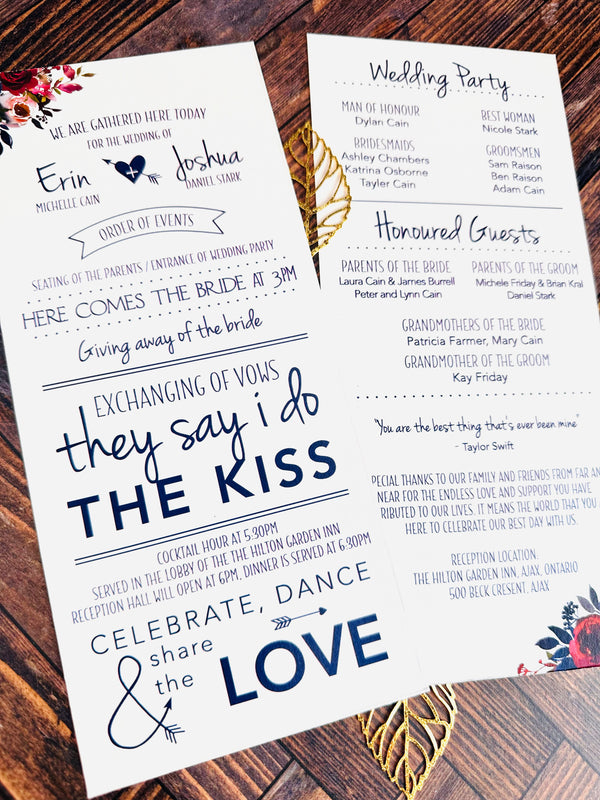 WE ARE GATHERED HERE TODAY
FOR THE WEDDING OF
Erin Joshua
MICHELLE CAIN DANIEL STARK
ORDER OF EVENTS
SEATING OF THE PARENTS / ENTRANCE OF WEDDING PARTY
HERE COMES THE BRIDE AT 3PM
Giving away of the bride
EXCHANGING OF VOWS
they say i do
THE KISS
COCKTAIL HOUR AT 5:30PM
SERVED IN THE LOBBY OF THE THE HILTON GARDEN INN
RECEPTION HALL WILL OPEN AT 6PM, DINNER IS SERVED AT 6:30PM
CELEBRATE, DANCE
& share
the LOVE
Wedding Party
MAN OF HONOUR
Dylan Cain
BEST WOMAN
Nicole Stark
BRIDESMAIDS
Ashley Chambers
Katrina Osborne
Tayler Cain
GROOMSMEN
Sam Raison
Ben Raison
Adam Cain
Honoured Guests
PARENTS OF THE BRIDE
Laura Cain & James Burrell
Peter and Lynn Cain
PARENTS OF THE GROOM
Michele Friday & Brian Kral
Daniel Stark
GRANDMOTHERS OF THE BRIDE
Patricia Farmer, Mary Cain
GRANDMOTHER OF THE GROOM
Kay Friday
"You are the best thing that's ever been mine"
- Taylor Swift
PECIAL THANKS TO OUR FAMILY AND FRIENDS FROM FAR AN
NEAR FOR THE ENDLESS LOVE AND SUPPORT YOU HAVE
RIBUTED TO OUR LIVES. IT MEANS THE WORLD THAT YOU A
HERE TO CELEBRATE OUR BEST DAY WITH US.
RECEPTION LOCATION:
THE HILTON GARDEN INN, AJAX, ONTARIO
500 BECK CRESENT, AJAX